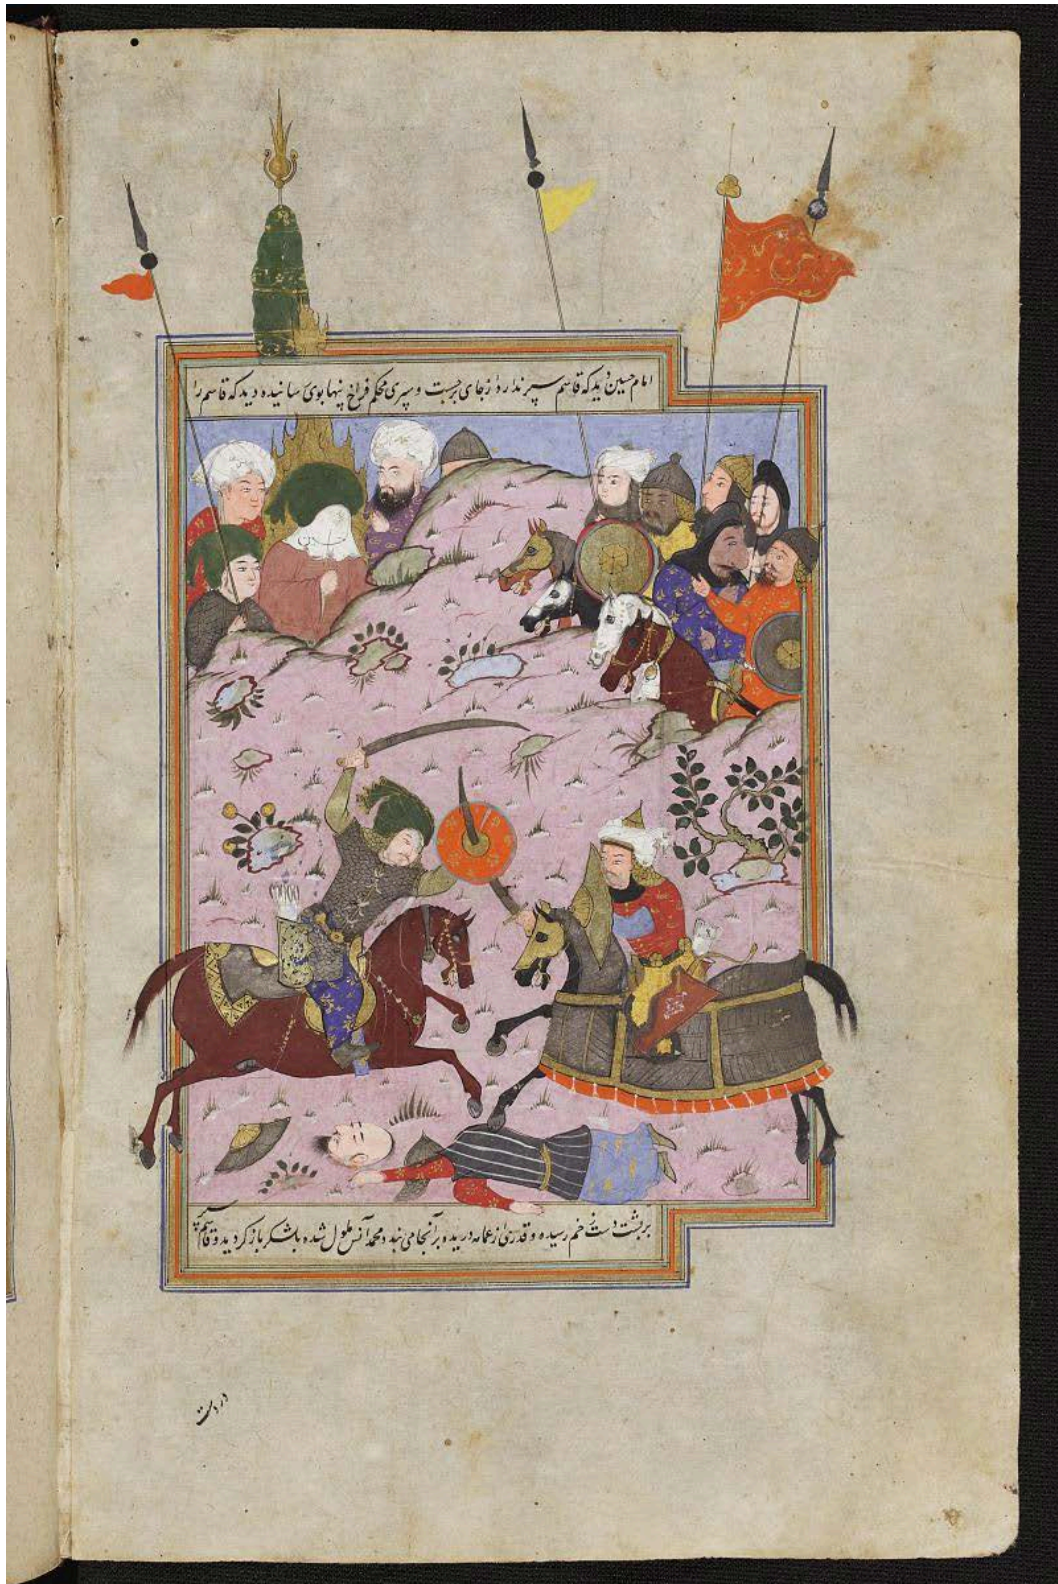 امام حسین دید که قاسم سپر ندارد از جای برجست و سپری محکم فراخ پنها بوی رسانیده دید که قاسم را
بر پشت دست زخم رسیده و قدری از عمامه درید و بر آنجا می بندد محمد انس ملول شده بلشکر باز کردید و قاسم سپر
در دست